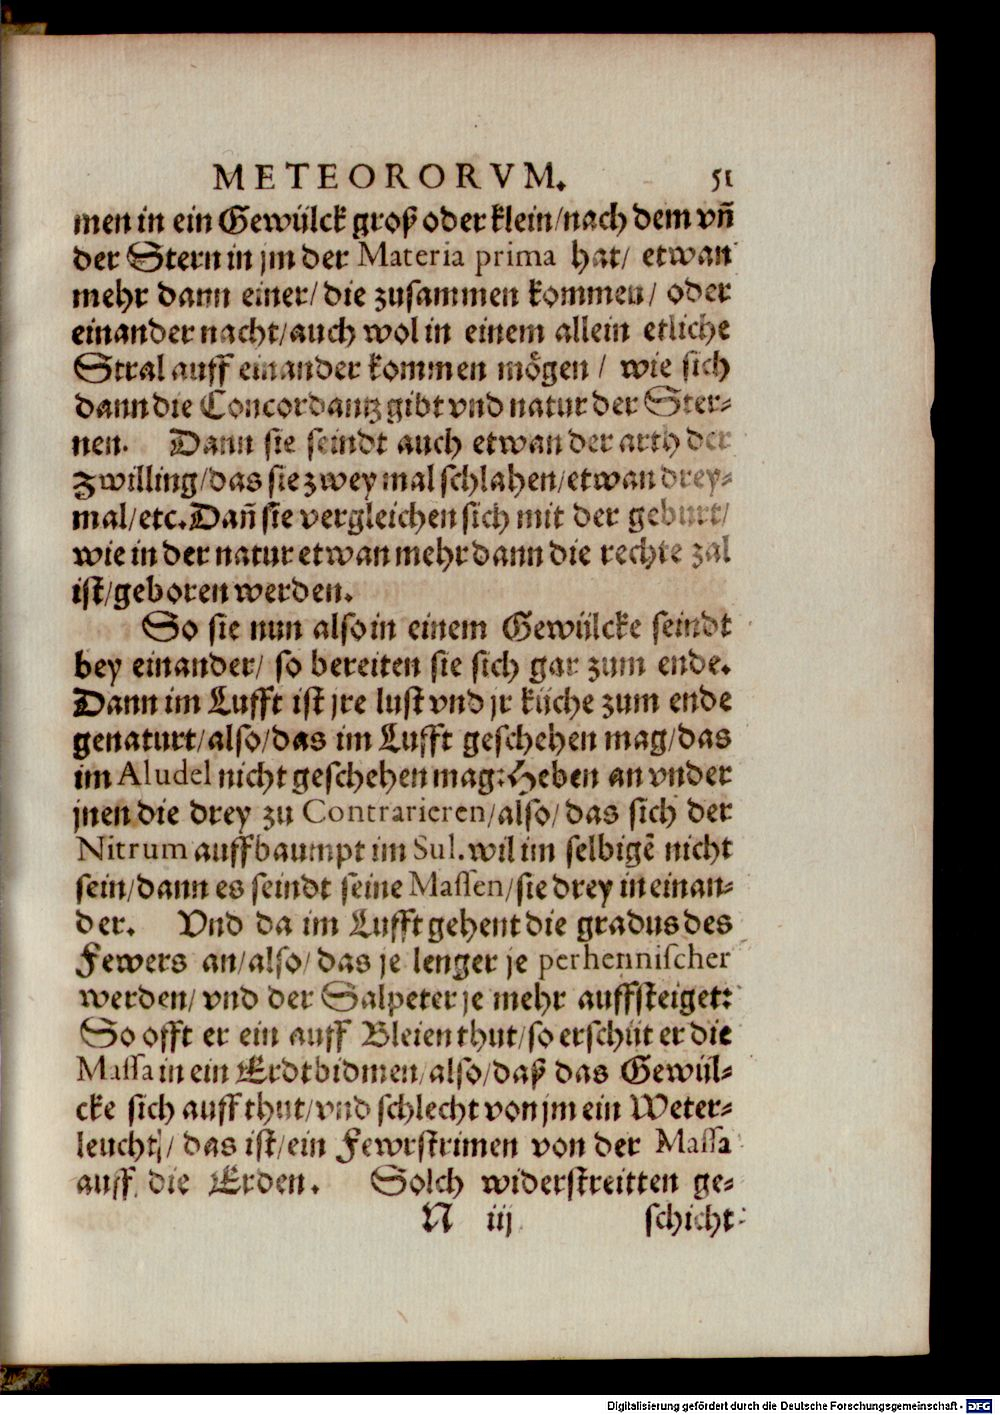 METEORORVM. 51
men in ein Gewülck groß oder klein/nach dem vñ
der Stern in jm der Materia prima hat/ etwan
mehr dann einer/ die zusammen kommen/ oder
einander nacht/auch wol in einem allein etliche
Stral auff einander kommen mögen / wie sich
dann die Concordantz gibt vnd natur der Ster-
nen. Dann sie seindt auch etwan der arth der
zwilling/das sie zwey mal schlahen/etwan drey-
mal/etc. Dañ sie vergleichen sich mit der geburt/
wie in der natur etwan mehr dann die rechte zal
ist/geboren werden.
So sie nun also in einem Gewülcke seindt
bey einander/ so bereiten sie sich gar zum ende.
Dann im Lufft ist jre lust vnd jr küche zum ende
genaturt/also/das im Lufft geschehen mag/das
im Aludel nicht geschehen mag: Heben an vnder
jnen die drey zu Contrarieren/also/das sich der
Nitrum auffbaumpt im Sul. wil im selbigẽ nicht
sein/dann es seindt seine Massen/sie drey in einan-
der. Vnd da im Lufft gehent die gradus des
Fewers an/also/das je lenger je perhennischer
werden/ vnd der Salpeter je mehr auffsteiget:
So offt er ein auff Bleien thut/so erschüt er die
Massa in ein Erdtbidmen/also/daß das Gewül-
cke sich auff thut/vnd schlecht von jm ein Weter-
leucht/ das ist/ein Fewrstrimen von der Massa
auff die Erden. Solch widerstreitten ge-
N iij schicht
Digitalisierung gefördert durch die Deutsche Forschungsgemeinschaft - DFG